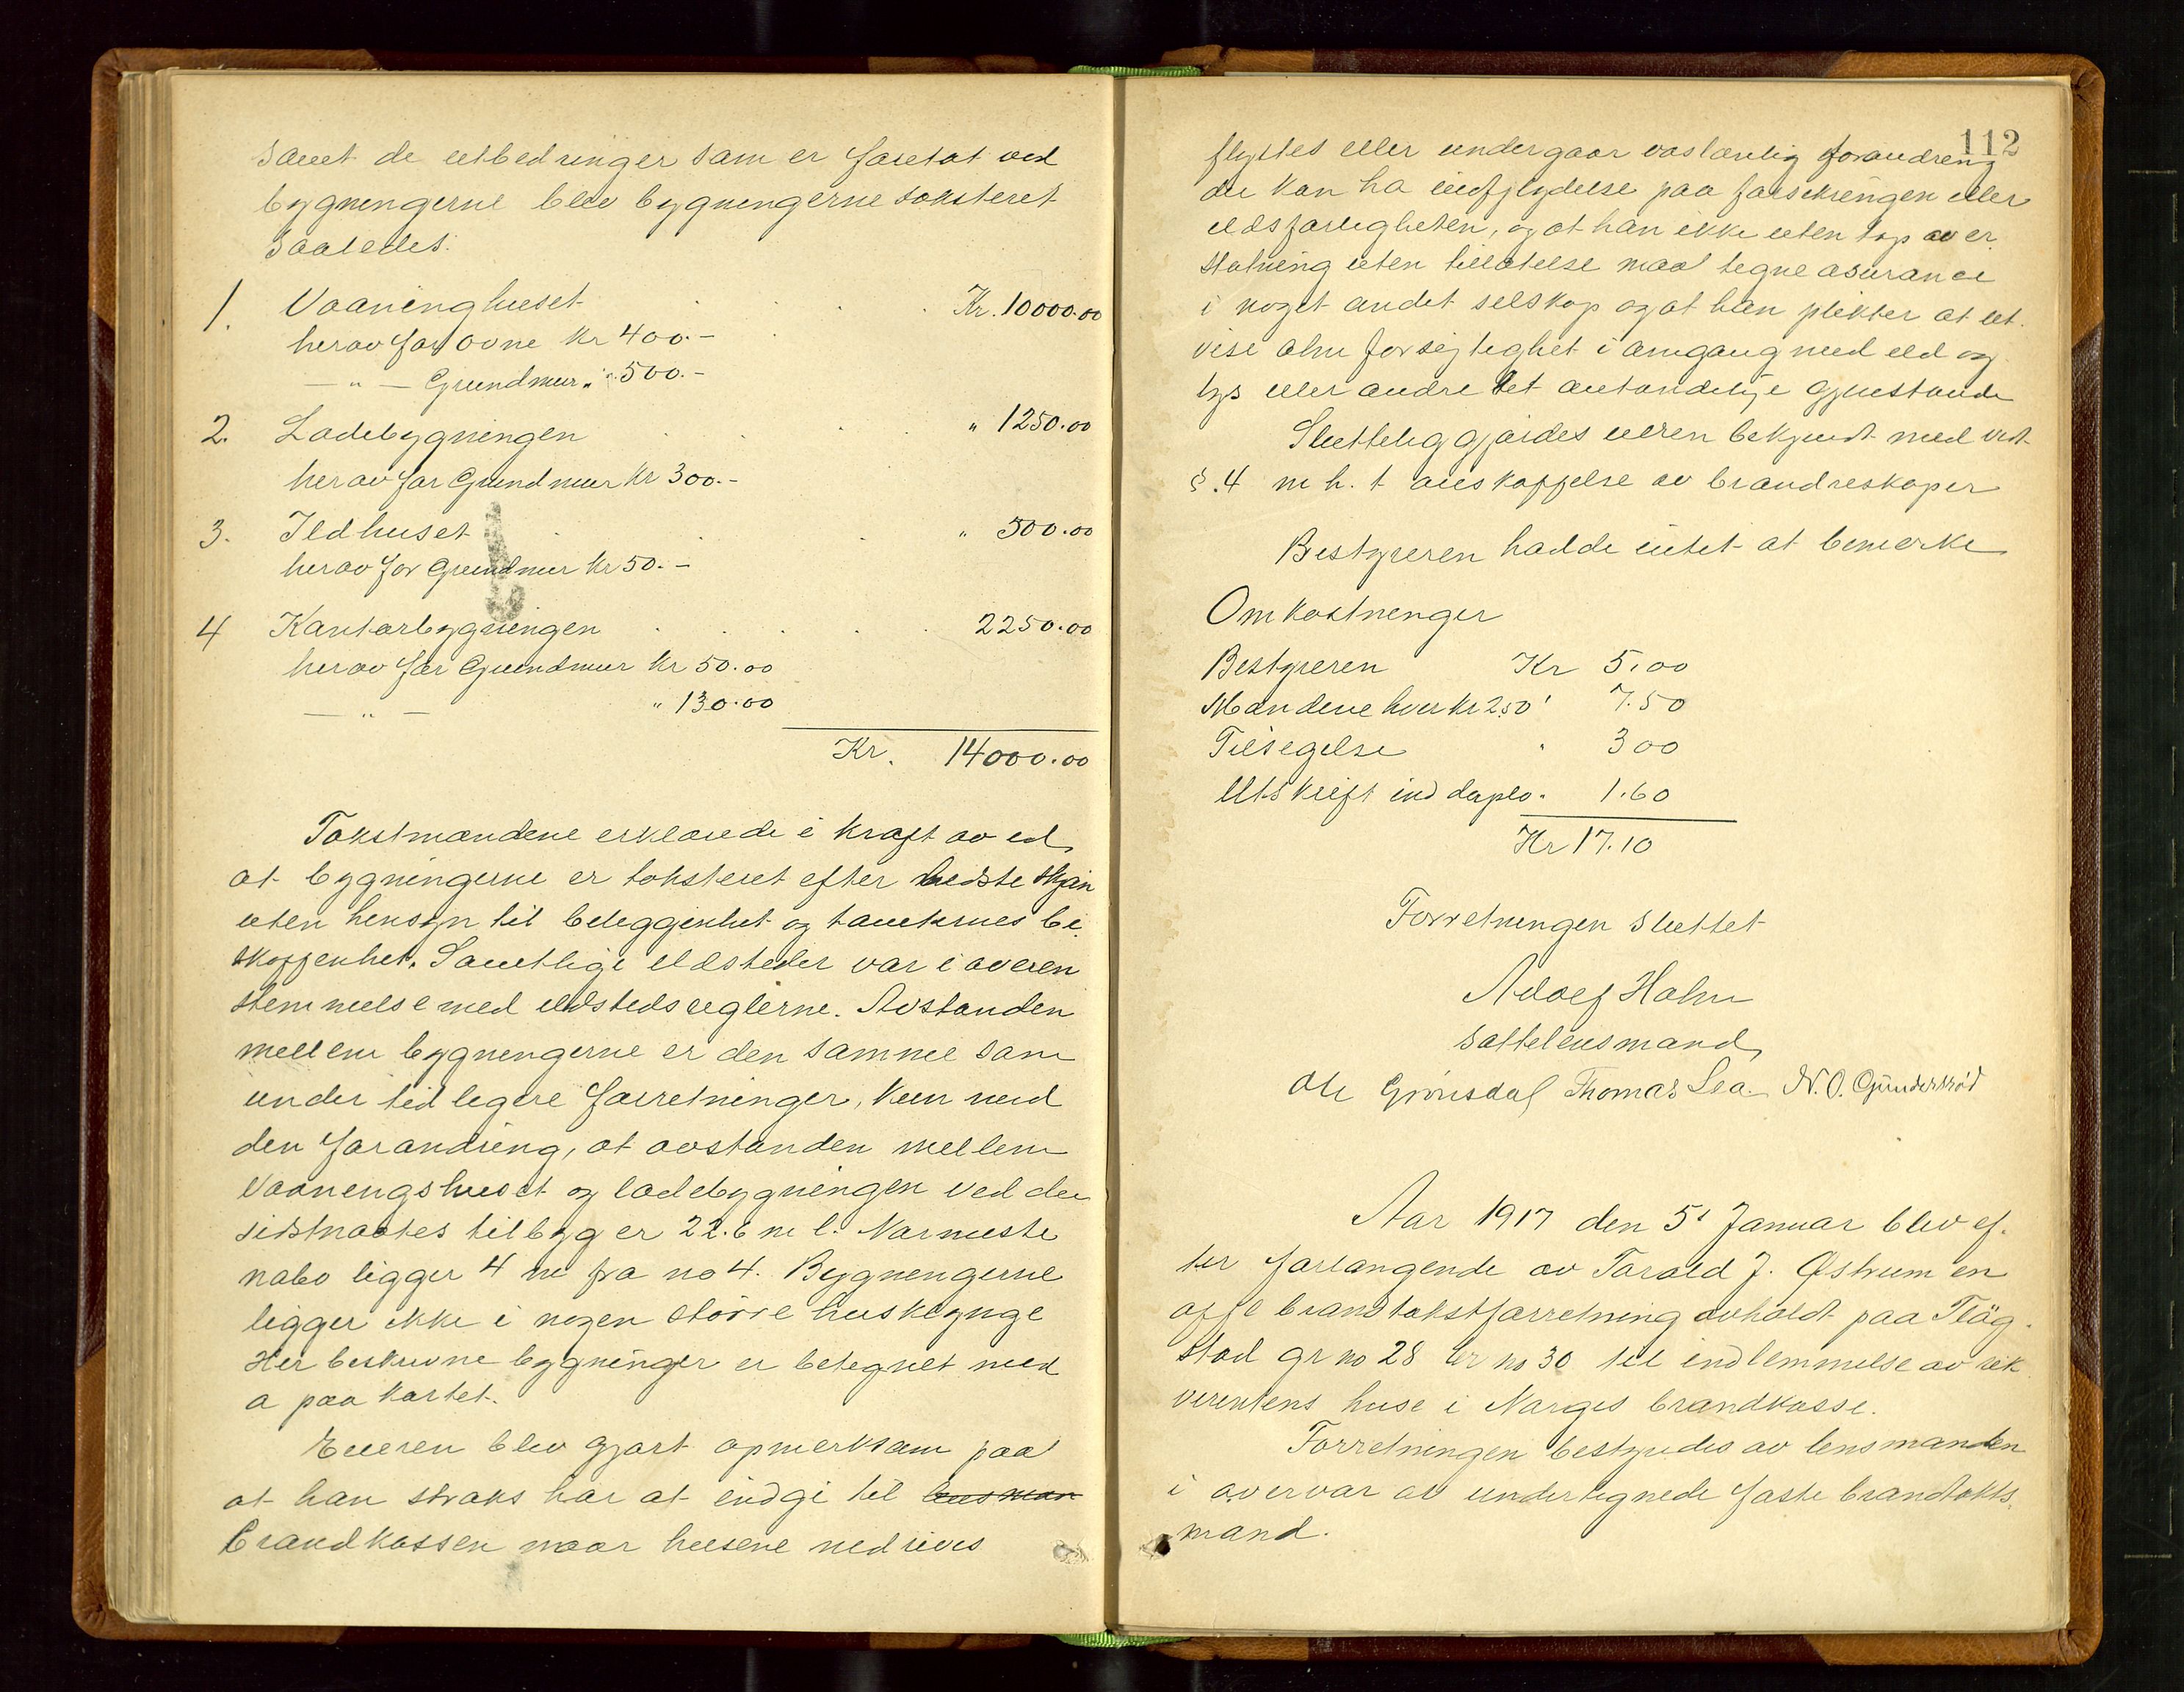 samt de utbedringer som er foretat ved
bygningerne blev bygningerne taksteret
saaledes:
1. Vaaninghuset . . . . Kr. 10000.00
herav for ovne Kr 400.-
— " — Grundmur " 500.-
2. Ladebygningen . . . . " 1250.00
herav for Grundmur Kr 300.-
3. Ildhuset . . . " 500.00
herav for Grundmur Kr 50.-
4 Kontorbygningen . . . . 2250.00
herav for Grundmur Kr 50.00
— " — " 130.00
Kr. 14000.00
Takstmændene erklærede i kraft av ed
at bygningerne er taksteret efter bedste skjøn
uten hensyn til beleggenhet og tomternes be-
skaffenhet. Samtlige ildsteder var i overen
stemmelse med ildstedsreglerne. Avstanden
mellem bygningerne er den samme som
under tidligere forretninger, kun med
den forandring, at avstanden mellem
Vaaningshuset og ladebygningen ved den
sidstnævtes tilbyg er 22.6 m l. Nærmeste
nabo ligger 4 m fra no 4. Bygningerne
ligger ikke i nogen større husklynge
Her beskrevne bygninger er betegnet med
a paa kartet.
Eieren blev gjort opmerksom paa
at han straks har at indgi til lensman
Brandkassen naar husene nedrives
112
flyttes eller undergaar væsentlig forandring
der kan ha indflydelse paa forsikringen eller
ildsfarligheten, og at han ikke uten tap av er
statning uten tillatelse maa tegne asurance
i noget andet selskap og at han plikter at ut-
vise alm forsigtighet i omgang med ild og
lys eller andre let antændelige gjenstande
Sluttelig gjordes eieren bekjendt med vedt
§.4 m h. t anskaffelse av brandredskaper
Bestyreren hadde intet at bemerke
Omkostninger
Bestyreren Kr 5.00
Mændene hver kr 2.50 " 7.50
Tilsigelse " 3 00
Utskrift ind duplo " 1.60
Kr 17.10
Forretningen sluttet
Adolf Holm
sattelensmand
Ole Grønsdal Thomas Lea N. O. Gunderstød
Aar 1917 den 5' Januar blev ef-
ter forlangende av Torald J. Østrem en
offl brandtakstforretning avholdt paa Fløg-
stad gr no 28 br no 30 til indlemmelse av rek
verentens huse i Norges brandkasse.
Forretningen bestyrdes av lensmanden
i overvær av undertegnede faste brandtakts-
mænd.